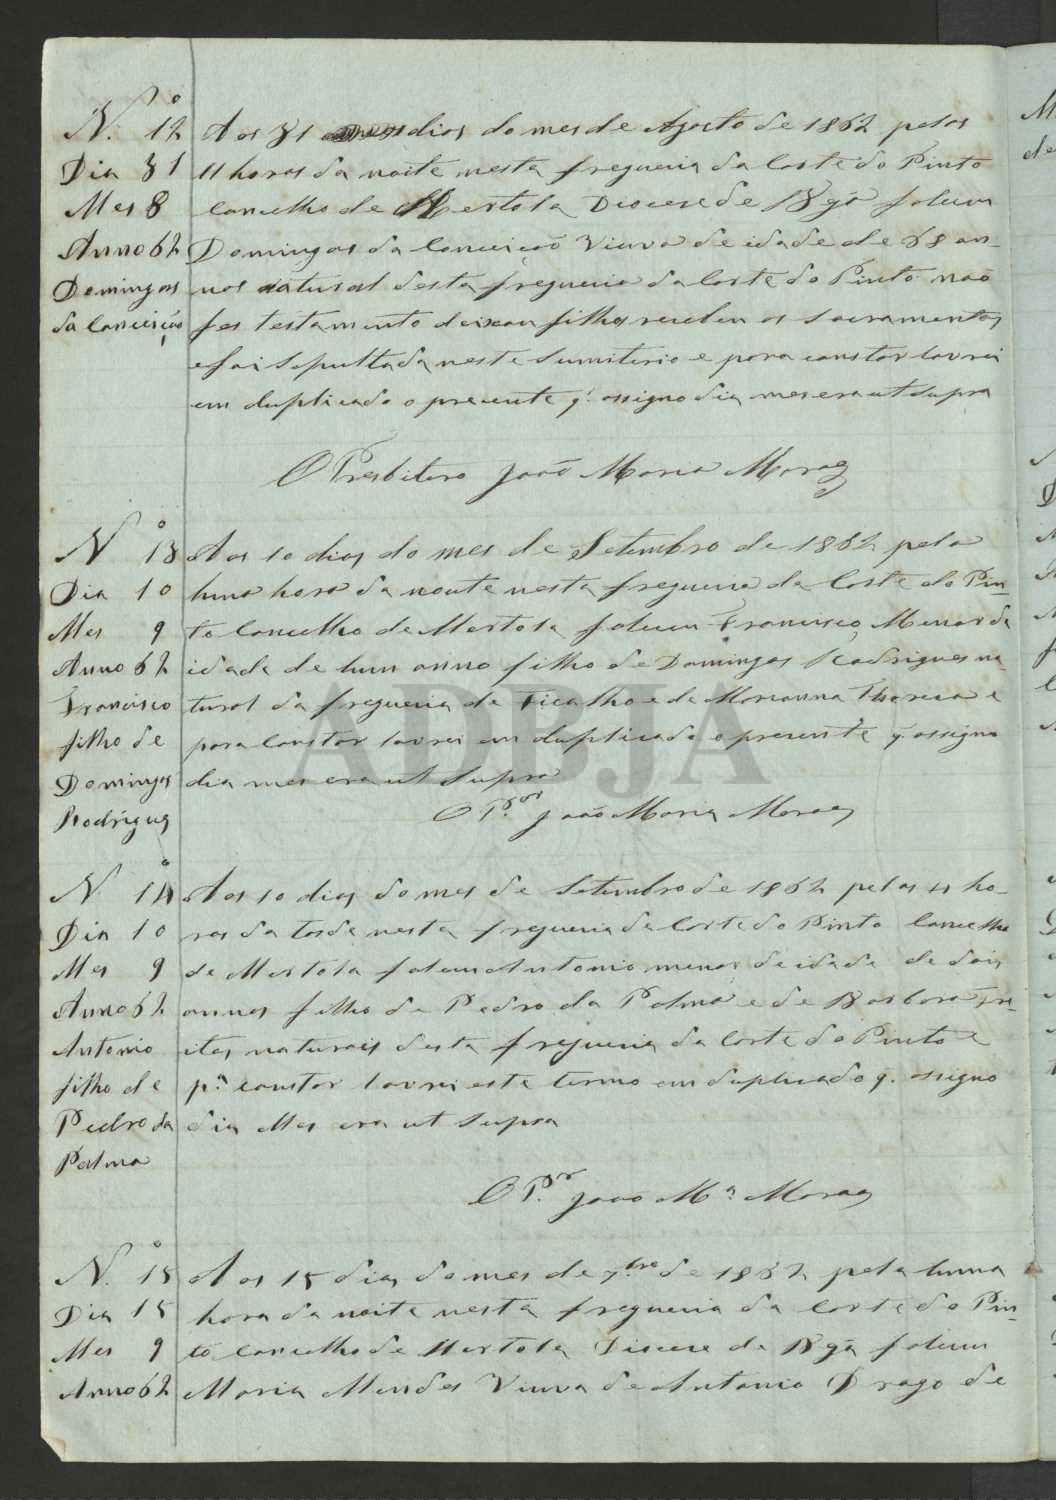 N.º 12
Dia 31
Mes 8
Anno 62
Domingas
da Conceição
Aos 31 dias do mes de Agosto de 1862 pelas
11 horas da noite nesta freguezia da Corte do Pinto
Concelho de Mertola Diocese de Beja faleceu
Domingas da Conceição Viuva de idade de 68 an-
nos natural desta freguezia da Corte do Pinto não
fes testamento deixou filhos recebeu os sacramentos
e foi sepultada neste sumiterio e para constar lavrei
em duplicado o prezente q. assigno dia mes era ut supra
O Presbitero João Maria Moraes
Nº 13
Dia 10
Mes 9
Anno 62
Francisco
filho de
Domingos
Rodrigues
Aos 10 dias do mes de Setembro de 1862 pela
huma hora da noute nesta freguezia da Corte do Pin-
to Concelho de Mertola faleceu Francisco, Menor da
idada de hum anno filho de Domingos Rodrigues na-
tural da freguezia de Ficalho e de Marianna Thereza e
para Constar lavrei em duplicado o prezente q. assigno
dia mes era ut supra
O P.or João Maria Moraes
N.º 14
Dia 10
Mes 9
Anno 62
Antonio
filho de
Pedro da
Palma
Aos 10 dias do mes de Setembro de 1862 pelas 4 ho-
ras da tarde nesta freguezia da Corte do Pinto Concelho
de Mertola faleceu Antonio menor de idade de dois
annos filho de Pedro da Palma e de Barbara Fre-
itas naturais desta freguezia da Corte do Pinto e
p.ª constar lavrei este termo em duplicado q. assigno
dia Mes era ut supra
O P.or João M.ª Moraes
N.º 15
Dia 15
Mes 9
Anno 62
Aos 15 dias do mes de 7.bro de 1862 pela huma
hora da noite nesta freguezia da Corte do Pin-
to Concelho de Mertola Diocese de Bejª faleceu
Maria Mendes Viuva de Antonio Drago de
ADBJA